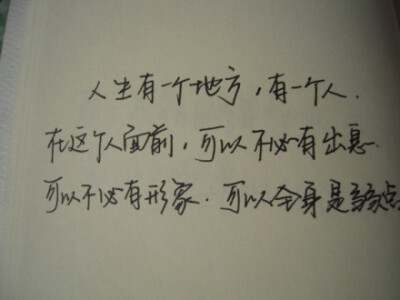 人生有一个地方，有一个人.
在这个人面前，可以不必有出息.
可以不必有形象. 可以全身是缺点